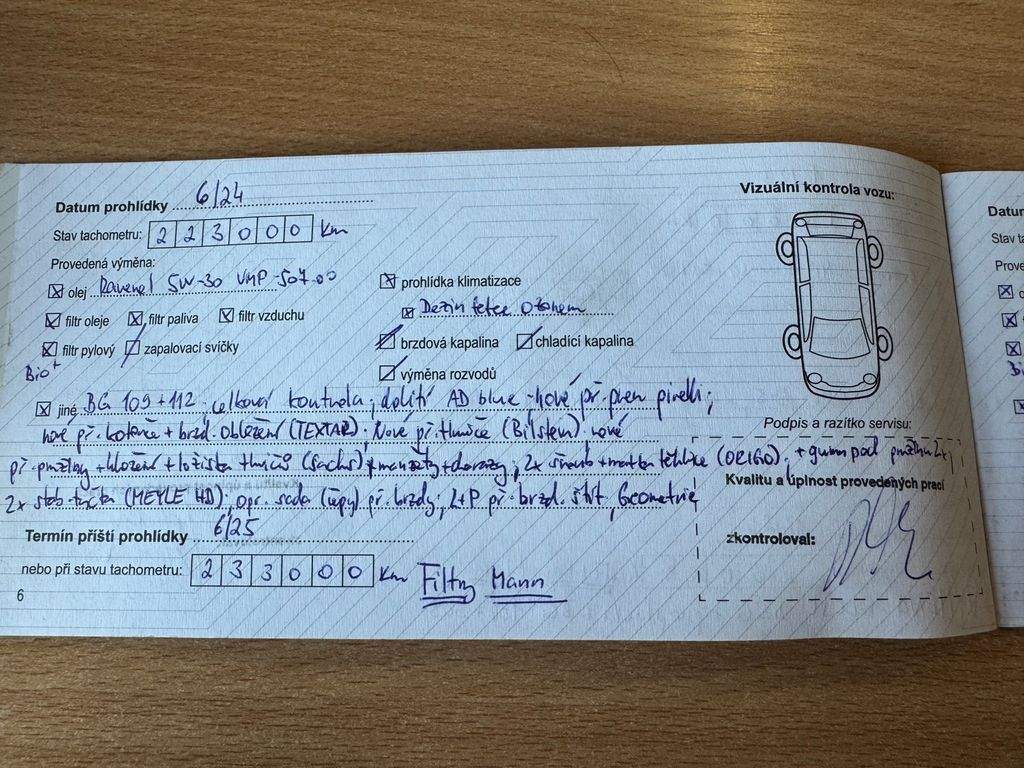 Datum prohlídky 6/24
Vizuální kontrola vozu:
Stav tachometru: 223000 km
Provedená výměna:
olej Ravenol 5W-30 VMP 507.00
prohlídka klimatizace
Dezinfekce Ozonem
filtr oleje filtr paliva filtr vzduchu
brzdová kapalina chladící kapalina
filtr pylový zapalovací svíčky
Bio+
výměna rozvodů
jiné BG 109+112 celková kontrola; dolití AD blue - nové př. pneu pirelli;
Podpis a razítko servisu:
nové př. kotouče + brzd. obložení (TEXTAR); Nové př. tlumiče (Bilstein); nové
př. pružiny + uložení + ložiska tlumičů (Sachs) + manžety + dorazy; 2x šroub + matka těhlice (ORIGO); + gum pod pružinu 2x;
Kvalitu a úplnost provedených prací
2x stab. tyčka (MEYLE HD); opr. sada (čepy) př. brzdy; L+P př. brzd. štít, Geometrie
zkontroloval:
Termín příští prohlídky 6/25
nebo při stavu tachometru: 233000 km
Filtry Mann
6
Datum
Stav ta
Prove